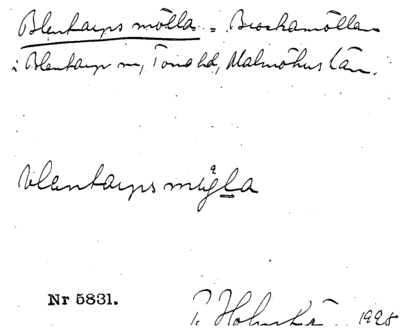 Blentarps mölla = Brookamöllan
i Blentarps sn, Torna hd, Malmöhus län.
blentarps
Nr 5831.
P. 1925